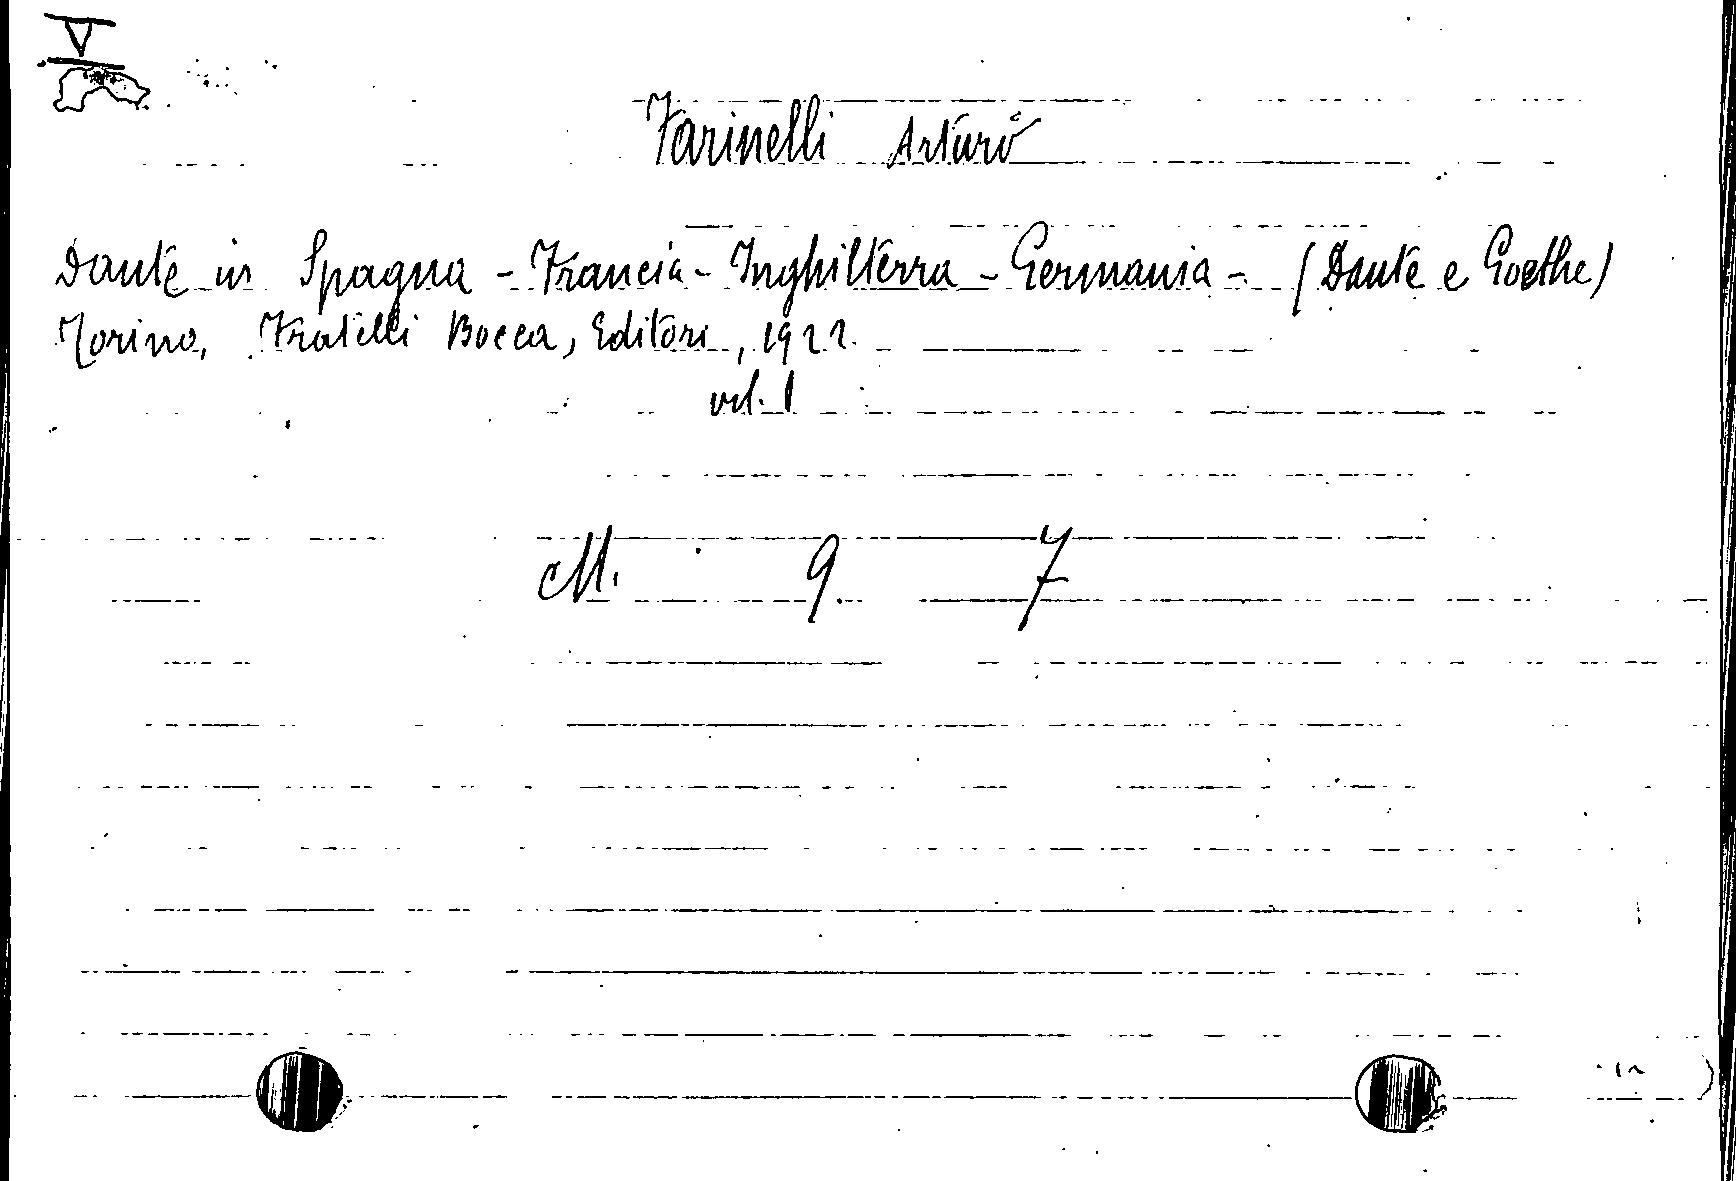 V
Farinelli Arturo
Dante in Spagna - Francia - Inghilterra - Germania - (Dante e Goethe)
Torino, Fratelli Bocca, Editori, 1922
vol. 1
M. 9. 7